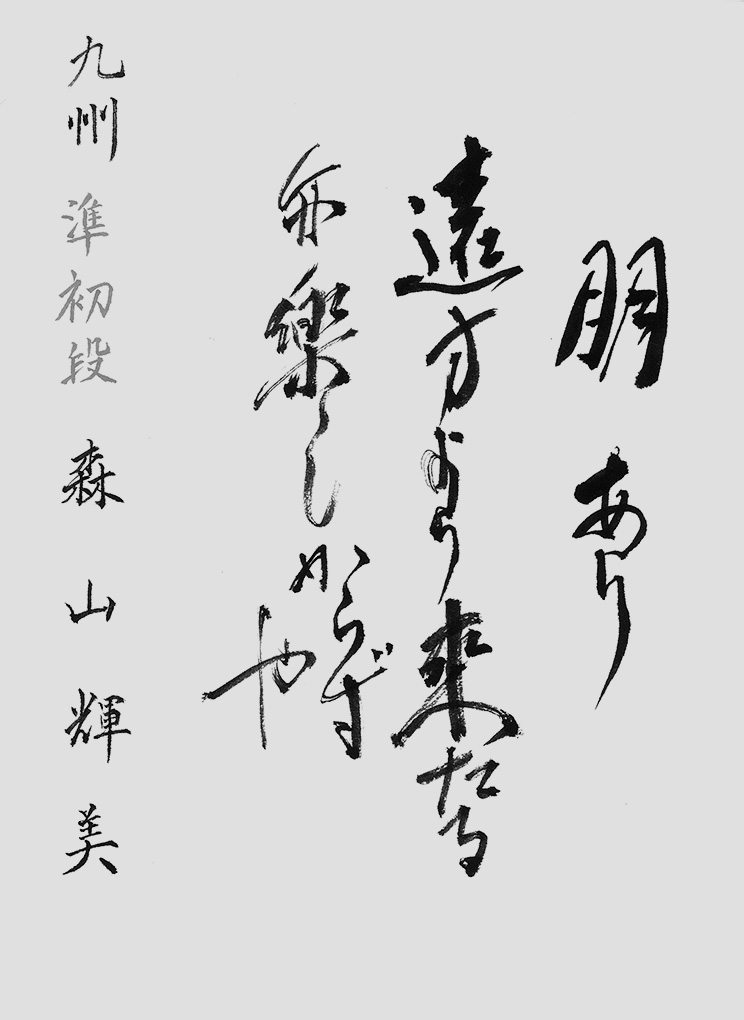 朋あり
遠方より来たる
亦楽しからずや
九州 準初段 森山輝美